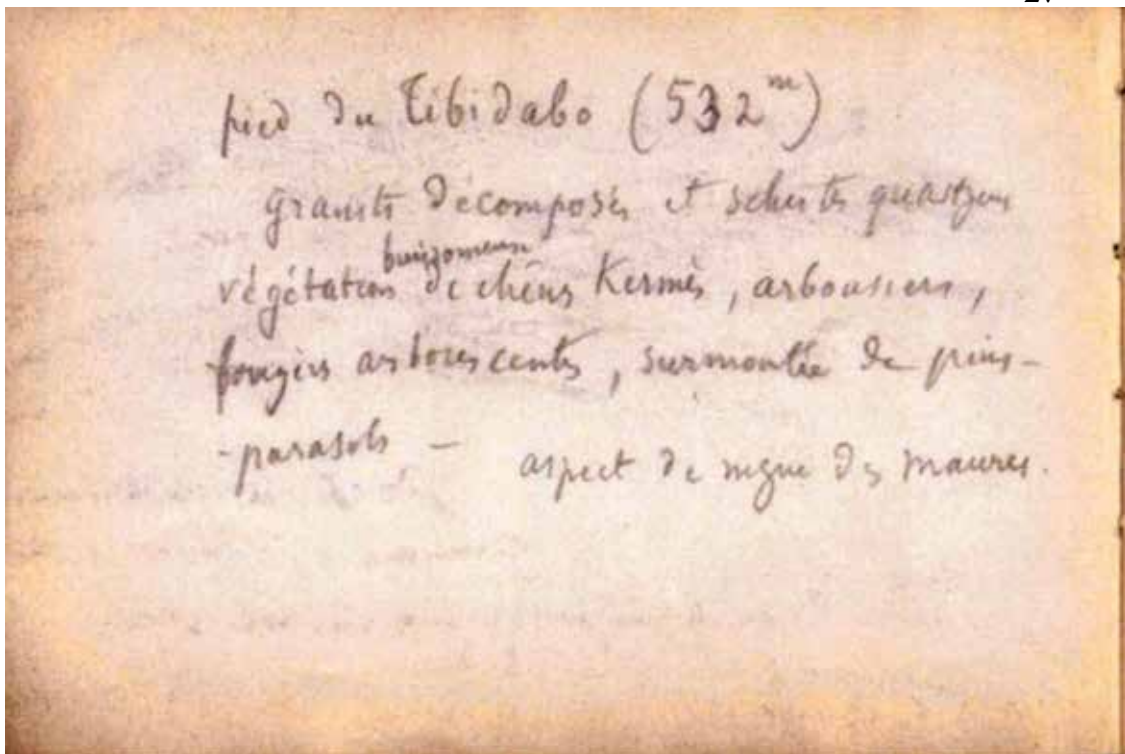 pied du Tibidabo (532ᵐ)
granits décomposés et schistes quartzeux
buissonneuse
végétation de chênes Kermès, arbousiers,
fougères arborescentes, surmontée de pins-
-parasols — aspect de maures.